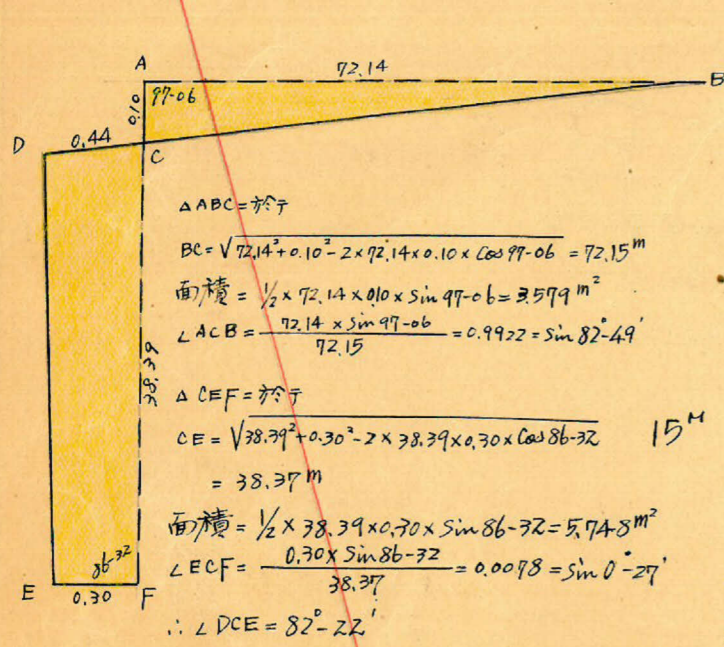 A
72.14
B
97-06
0.10
D
0.44
C
△ABC=於テ
BC=√72.14²+0.10²-2×72.14×0.10×Cos97-06 = 72.15m
面積 = 1/2×72.14×0.10×Sin97-06=3.579m²
∠ACB= 72.14×Sin97-06/72.15 =0.9922=Sin82°-49'
38.39
△CEF=於テ
CE=√38.39²+0.30²-2×38.39×0.30×Cos86-32
15M
= 38.37m
面積 = 1/2×38.39×0.30×Sin86-32=5.748m²
86-32
∠ECF= 0.30×Sin86-32/38.37 =0.0078=Sin0°-27'
E
0.30
F
∴∠DCE=82°-22'